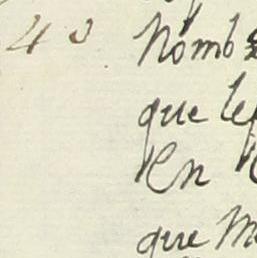 40 nomb
que le
En
que m